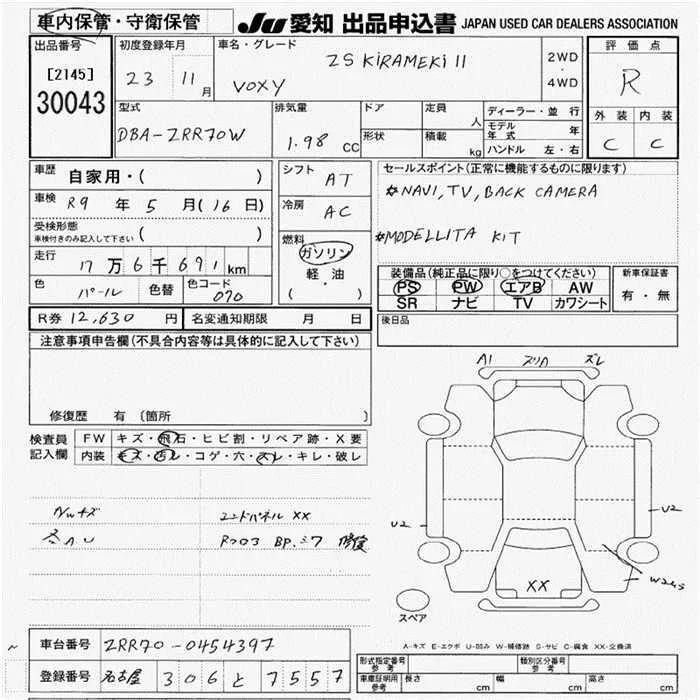 車内保管・守衛保管 JU 愛知 出品申込書 JAPAN USED CAR DEALERS ASSOCIATION
出品番号 初度登録年月 車名・グレード 評価点
[2145] 23 11月 VOXY ZS KIRAMEKI II 2WD・4WD R
30043
型式 排気量 ドア 定員 人 ディーラー・並行 外装 内装
DBA-ZRR70W 1.98 CC 形状 積載 kg モデル年式 年 C C
ハンドル 左・右
車歴 自家用・( ) シフト AT セールスポイント(正常に機能するものに限ります)
車検 R9年 5月(16日) 冷房 AC *NAVI, TV, BACK CAMERA
受検形態 車検付きのみ記入して下さい ( ) *MODELLITA KIT
走行 17万6千691km 燃料 ガソリン 軽・油 ( ・ )
色 パール 色替 色コード 070
装備品(純正品に限り○をつけてください) 新車保証書
PS PW エアB AW 有・無
SR ナビ TV カワシート
R券 12,630円 名変通知期限 月 日 後日品
注意事項申告欄(不具合内容等は具体的に記入して下さい)
修復歴 有 (箇所 )
検査員記入欄 FW キズ・飛石・ヒビ割・リペア跡・X要
内装 キズ・汚レ・コゲ・穴・スレ・キレ・破レ
A1 ズレ
エンドパネル XX
U2 U2
XX W2
スペア
A-キズ E-エクボ U-凹み W-補修跡 S-サビ C-腐食 XX-交換済
車台番号 ZRR70-0454397
登録番号 名古屋 306 と 7557
形式指定番号 参考 類別区分番号 参考
車庫証明用 参考 長さ cm 幅 cm 高さ cm